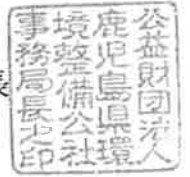 公益財団法人
鹿児島県環
境整備公社
事務局長之印